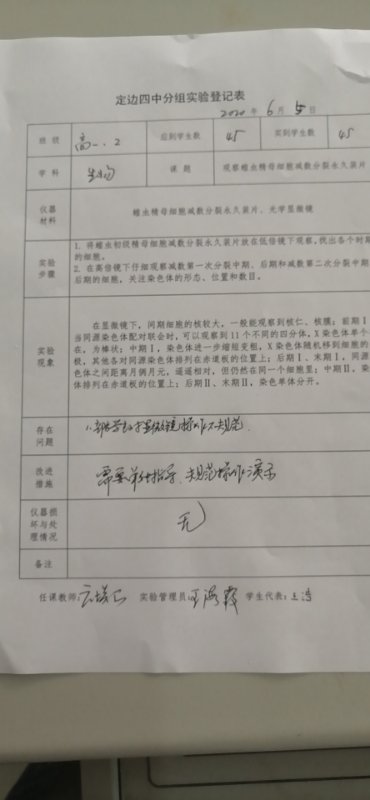 定边四中分组实验登记表
2020 年 6 月 5 日
班 级 高一.2 应到学生数 45 实到学生数 45
学 科 生物 课 题 观察蝗虫精母细胞减数分裂永久装片
仪器材料 蝗虫精母细胞减数分裂永久装片、光学显微镜
实验步骤
1. 将蝗虫初级精母细胞减数分裂永久装片放在低倍镜下观察,找出各个时期
的细胞。
2. 在高倍镜下仔细观察减数第一次分裂中期、后期和减数第二次分裂中期
后期的细胞，关注染色体的形态、位置和数目。
实验现象
在显微镜下，间期细胞的核较大，一般能观察到核仁、核膜；前期Ⅰ
当同源染色体配对联会时，可以观察到 11 个不同的四分体，X 染色体单个
在，为棒状；中期Ⅰ，染色体进一步缩短变粗，X 染色体随机移到细胞的
极，其他各对同源染色体排列在赤道板的位置上；后期Ⅰ、末期Ⅰ，同源
色体之间距离月俩月元，遥遥相对，但仍然在同一个细胞里；中期Ⅱ，染
体排列在赤道板的位置上；后期Ⅱ、末期Ⅱ，染色单体分开。
存在问题 1、部分学生对显微镜操作不规范.
改进措施 需要单独指导、规范操作演示
仪器损坏与处理情况 无
备注
任课教师: 实验管理员: 王海霞 学生代表: 王浩